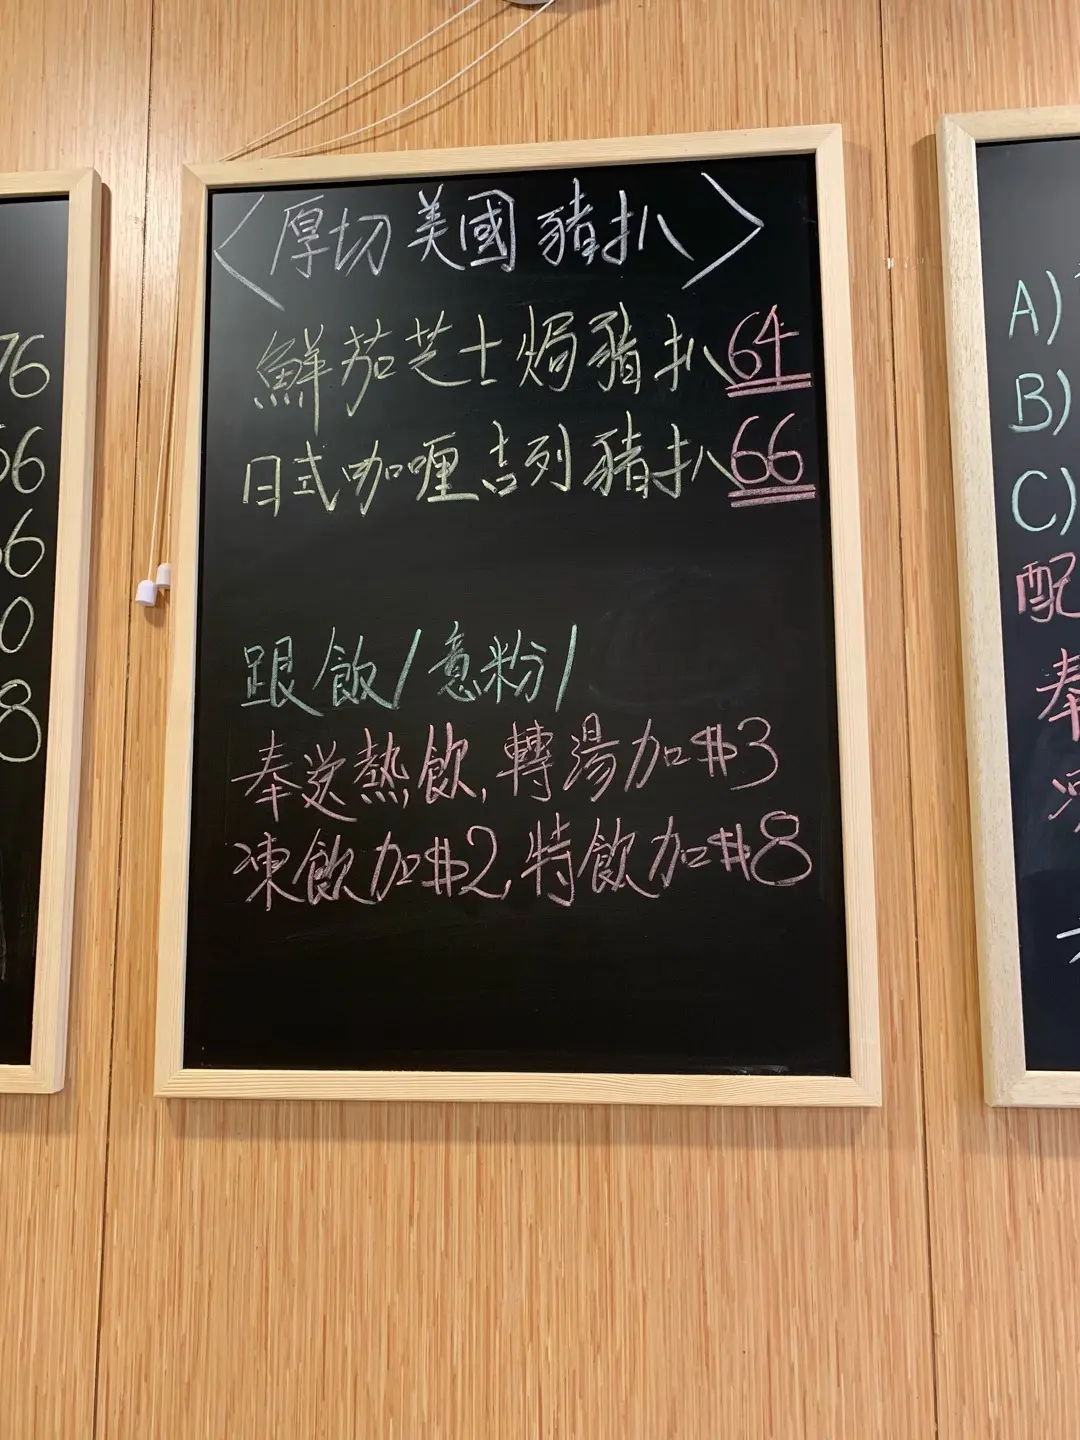 〈厚切美國豬扒〉
鮮茄芝士焗豬扒 64
日式咖喱吉列豬扒 66
跟飯/意粉/
奉送熱飲,轉湯加$3
凍飲加$2,特飲加$8
76
66
0
8
A)
B)
C)
配
奉